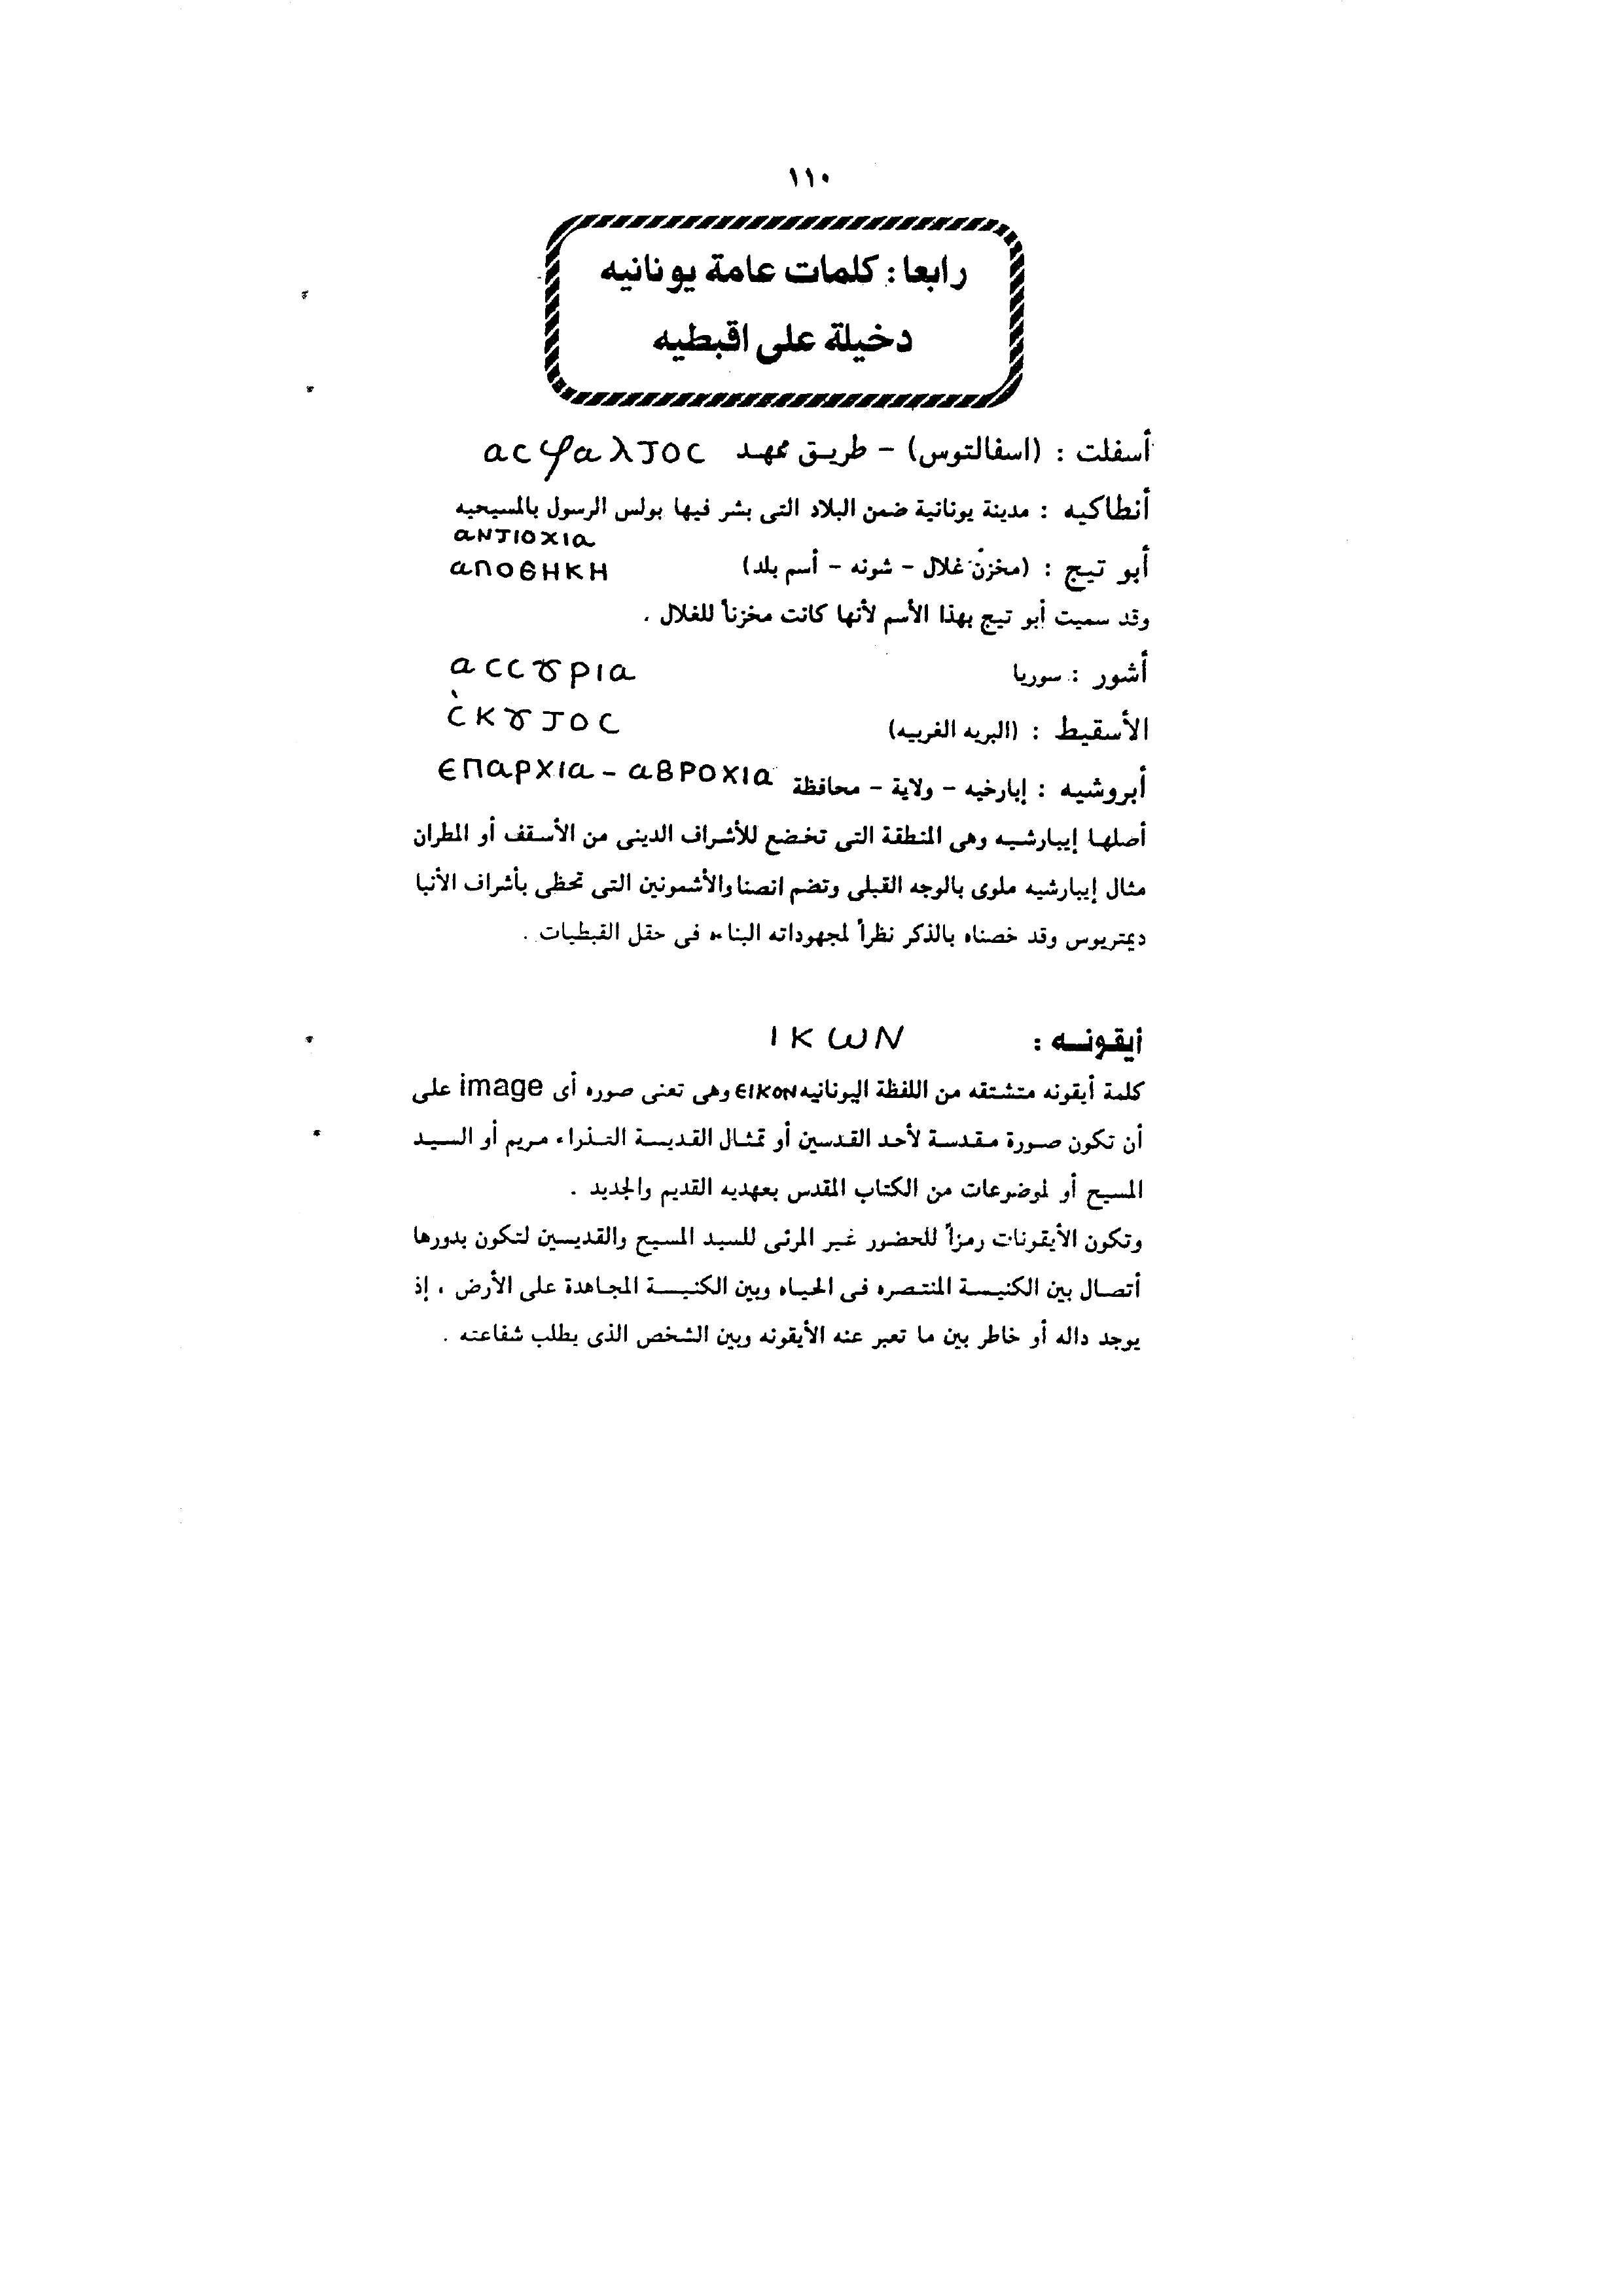 ١١٠
رابعا : كلمات عامة يونانيه
دخيلة على اقبطيه
أسفلت : (اسفالتوس) - طريق ممهد ⲁⲥⲫⲁⲗⲧⲟⲥ
أنطاكيه : مدينة يونانية ضمن البلاد التى بشر فيها بولس الرسول بالمسيحيه
ⲁⲛⲧⲓⲟⲭⲓⲁ
أبو تيج : (مخزن غلال - شونه - أسم بلد) ⲁⲡⲟⲑⲏⲕⲏ
وقد سميت أبو تيج بهذا الأسم لأنها كانت مخزناً للغلال .
أشور : سوريا ⲁⲥⲥⲩⲣⲓⲁ
الأسقيط : (البريه الغربيه) ⲥ̀ⲕⲩⲧⲟⲥ
أبروشيه : إبارخيه - ولاية - محافظة ⲉⲡⲁⲣⲭⲓⲁ - ⲁⲃⲣⲟⲭⲓⲁ
أصلها إيبارشيه وهى المنطقة التى تخضع للأشراف الدينى من الأسقف أو المطران
مثال إيبارشيه ملوى بالوجه القبلى وتضم انصنا والأشمونين التى تحظى بأشراف الأنبا
ديمتريوس وقد خصناه بالذكر نظراً لمجهوداته البناء فى حقل القبطيات .
أيقونه : ⲓⲕⲱⲛ
كلمة أيقونه متشتقه من اللفظة اليونانيه ⲉⲓⲕⲟⲛ وهى تعنى صوره أى image على
أن تكون صورة مقدسة لأحد القدسين أو تمثال القديسة التذراء مريم أو السيد
المسيح أو لموضوعات من الكتاب المقدس بعهديه القديم والجديد .
وتكون الأيقونات رمزاً للحضور غير المرئى للسيد المسيح والقديسين لتكون بدورها
أتصال بين الكنيسة المنتصره فى الحياه وبين الكنيسة المجاهدة على الأرض ، إذ
يوجد داله أو خاطر بين ما تعبر عنه الأيقونه وبين الشخص الذى يطلب شفاعته .